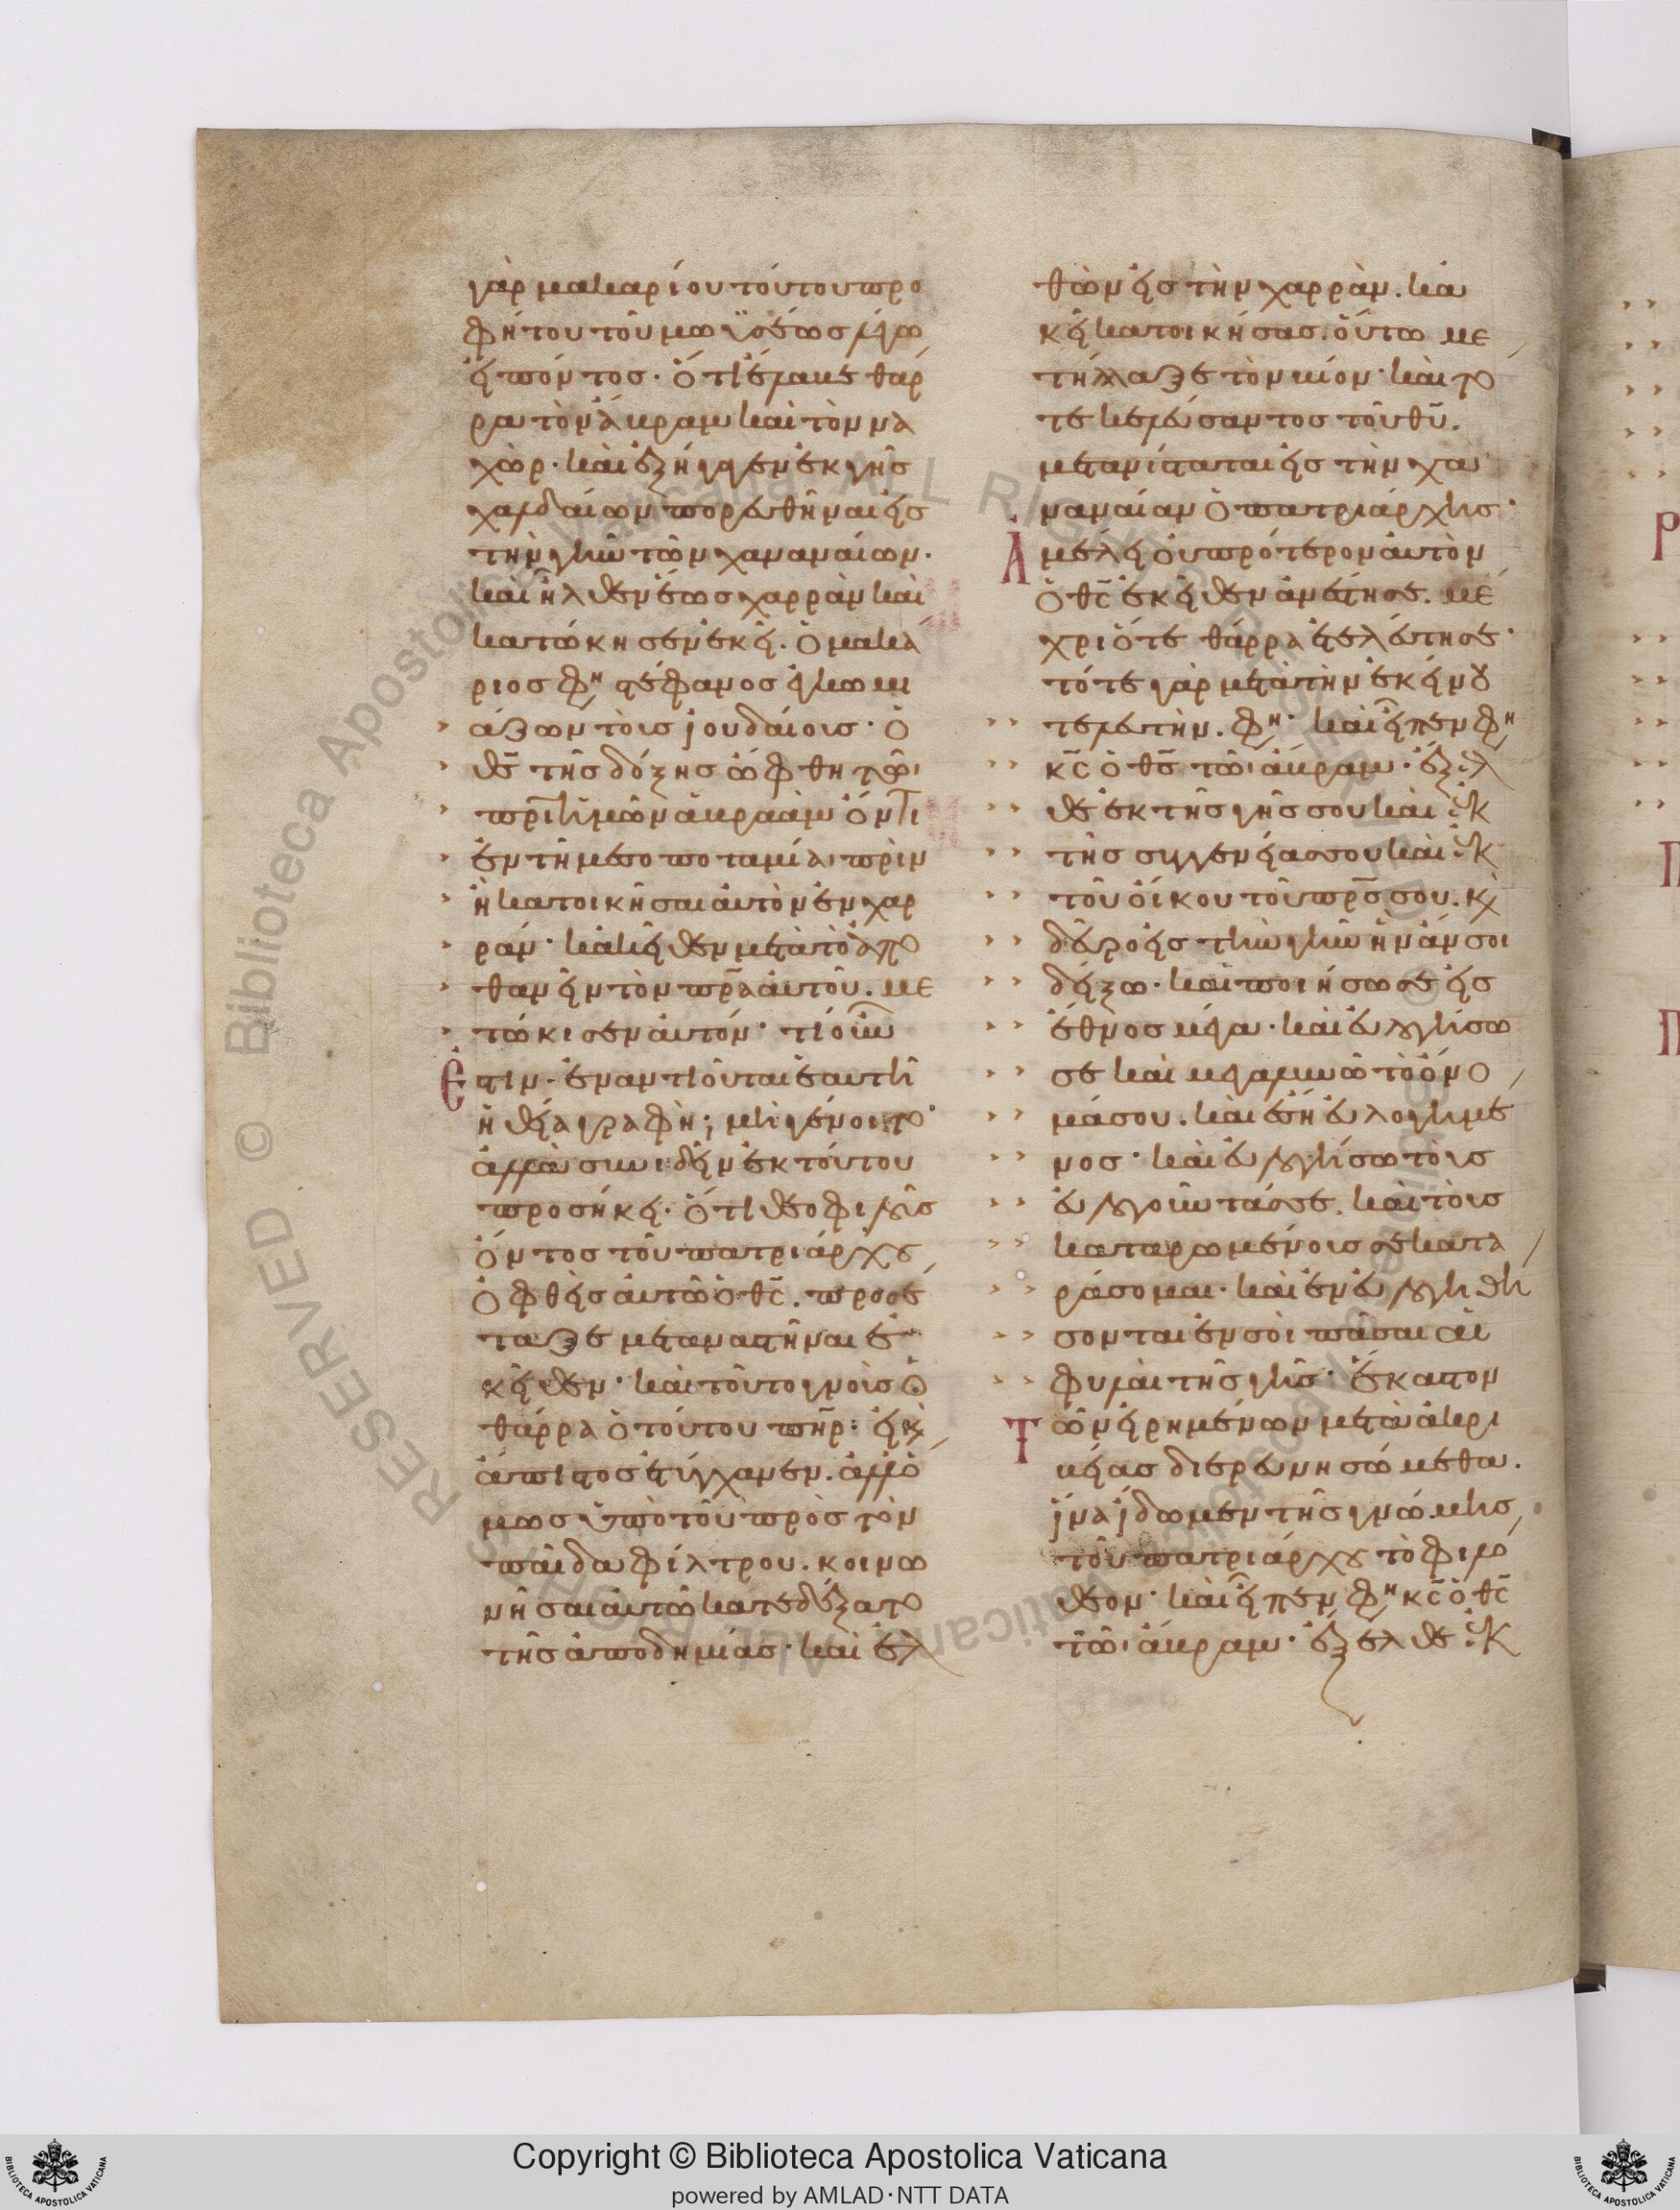 γὰρ μακαρίου τούτου προ
φήτου τοῦ μωϋσέως λέγο
εἰπόντος· ὅτι ἔλαβε θάρ
ρα τὸν ἄβραμ καὶ τὸν να
χώρ· καὶ ἐξήγαγεν ἐκ γῆς
χαλδαίων πορευθῆναι εἰς
τὴν γῆν τῶν χαναναίων.
καὶ ἦλθεν ἕως χαρρὰν καὶ
κατώκησεν ἐκεῖ. ὁ μακά
ριος φη στέφανος ἐβόω βι
άζων τοῖς ἰουδαίοις· ὁ
θς τῆς δόξης ὤφθη τῶι
πρὶ ἡμῶν ἀβραὰμ ὄντι
ἐν τῆ μεσοποταμίαι πρὶν
ἢ κατοικῆσαι αὐτὸν ἐν χαρ
ράν· κἀκεῖθεν μετὰ τὸ ἀπο
θανεῖν τὸν πρα αὐτοῦ. με
τώκισεν αὐτόν· τί οὖν
ἐστιν· ἐναντιοῦται ἑαυτῆ
ἡ θεία γραφή; μὴ γένοιτο·
ἀλλὰ συνιδεῖν ἐκ τούτου
προσήκει· ὅτι θεοφιλοῦς
ὄντος τοῦ πατριάρχου
ὀφθεὶς αὐτῶ ὁ θς. προσέ
ταξε μεταναστῆναι ἐ
κεῖθεν· καὶ τοῦτο γνοὺς ὁ
θάρρα ὁ τούτου πηρ· εἰ κὶ
ἄπιστος ἐτύγχανεν. ἀλλ' ὅ
μως ὑπὸ τοῦ πρὸς τὸν
παῖδα φίλτρου. κοινω
νῆσαι αὐτῶ κατεδέξατο
τῆς ἀποδημίας· καὶ ἐλ
θὼν εἰς τὴν χαρράν. κα
κεῖ κατοικήσας. οὕτω με
τήλλαξε τὸν βίον· καὶ το
τε κελεύσαντος τοῦ θυ.
μετανίσταται εἰς τὴν χα
ναναίαν ὁ πατριάρχης·
ἀμέλει οὐ πρότερον αὐτὸν
ὁ θς ἐκεῖθεν ἀνέστησε. μέ
χρι ὅτε θάρρα ἐτελεύτησε·
τότε γὰρ μετὰ τὴν ἐκείνου
τελευτήν. φη· καὶ εἶπεν φη
κς ὁ θς τῶι ἄβραμ· ἔξελ
θε ἐκ τῆς γῆς σου καὶ ἐκ
τῆς συγγενείας σου καὶ ἐκ
τοῦ οἴκου τοῦ πρς σου. κὶ
δεῦρο εἰς τὴν γῆν ἣν ἄν σοι
δείξω· καὶ ποιήσω σε εἰς
ἔθνος μέγα· καὶ εὐλογήσω
σε καὶ μεγαλυνῶ τὸ ὄνο
μά σου. καὶ ἔση εὐλογημέ
νος· καὶ εὐλογήσω τοὺς
εὐλογοῦντάς σε. καὶ τοὺς
καταρωμένους σε κατα
ράσομαι· καὶ ἐνευλογηθή
σονται ἐν σοὶ πᾶσαι αἱ
φυλαὶ τῆς γῆς· ἕκαστον
τῶν εἰρημένων μετὰ ἀκρι
βείας διερευνησώμεθα.
ἵνα ἴδωμεν τῆς γνώμης
τοῦ πατριάρχου τὸ φιλό
θεον· καὶ εἶπεν φη κς ὁ θς
τῶι ἄβραμ· ἔξελθε ἐκ
Copyright © Biblioteca Apostolica Vaticana
powered by AMLAD·NTT DATA